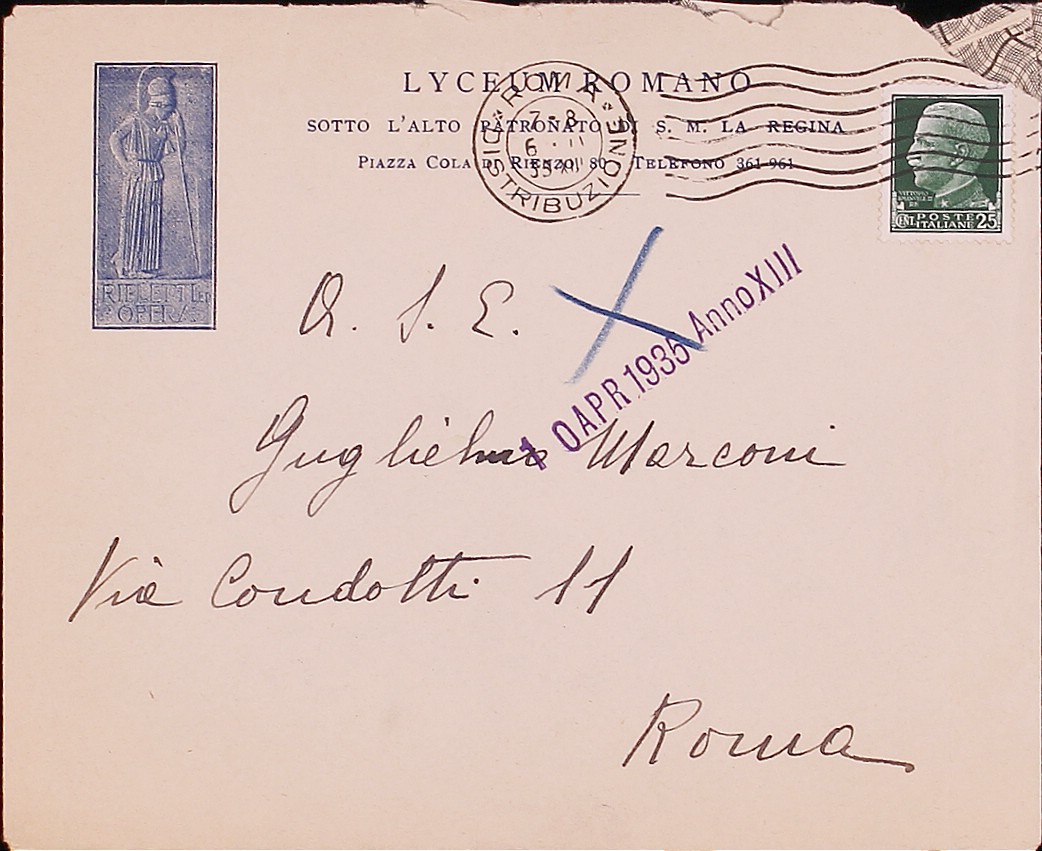 LYCEUM ROMANO
SOTTO L'ALTO PATRONATO DI S. M. LA REGINA
PIAZZA COLA DI RIENZO, 80 - TELEFONO 361-961
ROMA
7-8
6 · II
35 XIII
DISTRIBUZIONE
VITTORIO
EMANUELE III
RE
CENT. POSTE 25
ITALIANE
RIFLETTI ED
OPERA
A. S. E.
10 APR 1935 Anno XIII
Guglielmo Marconi
Via Condotti 11
Roma